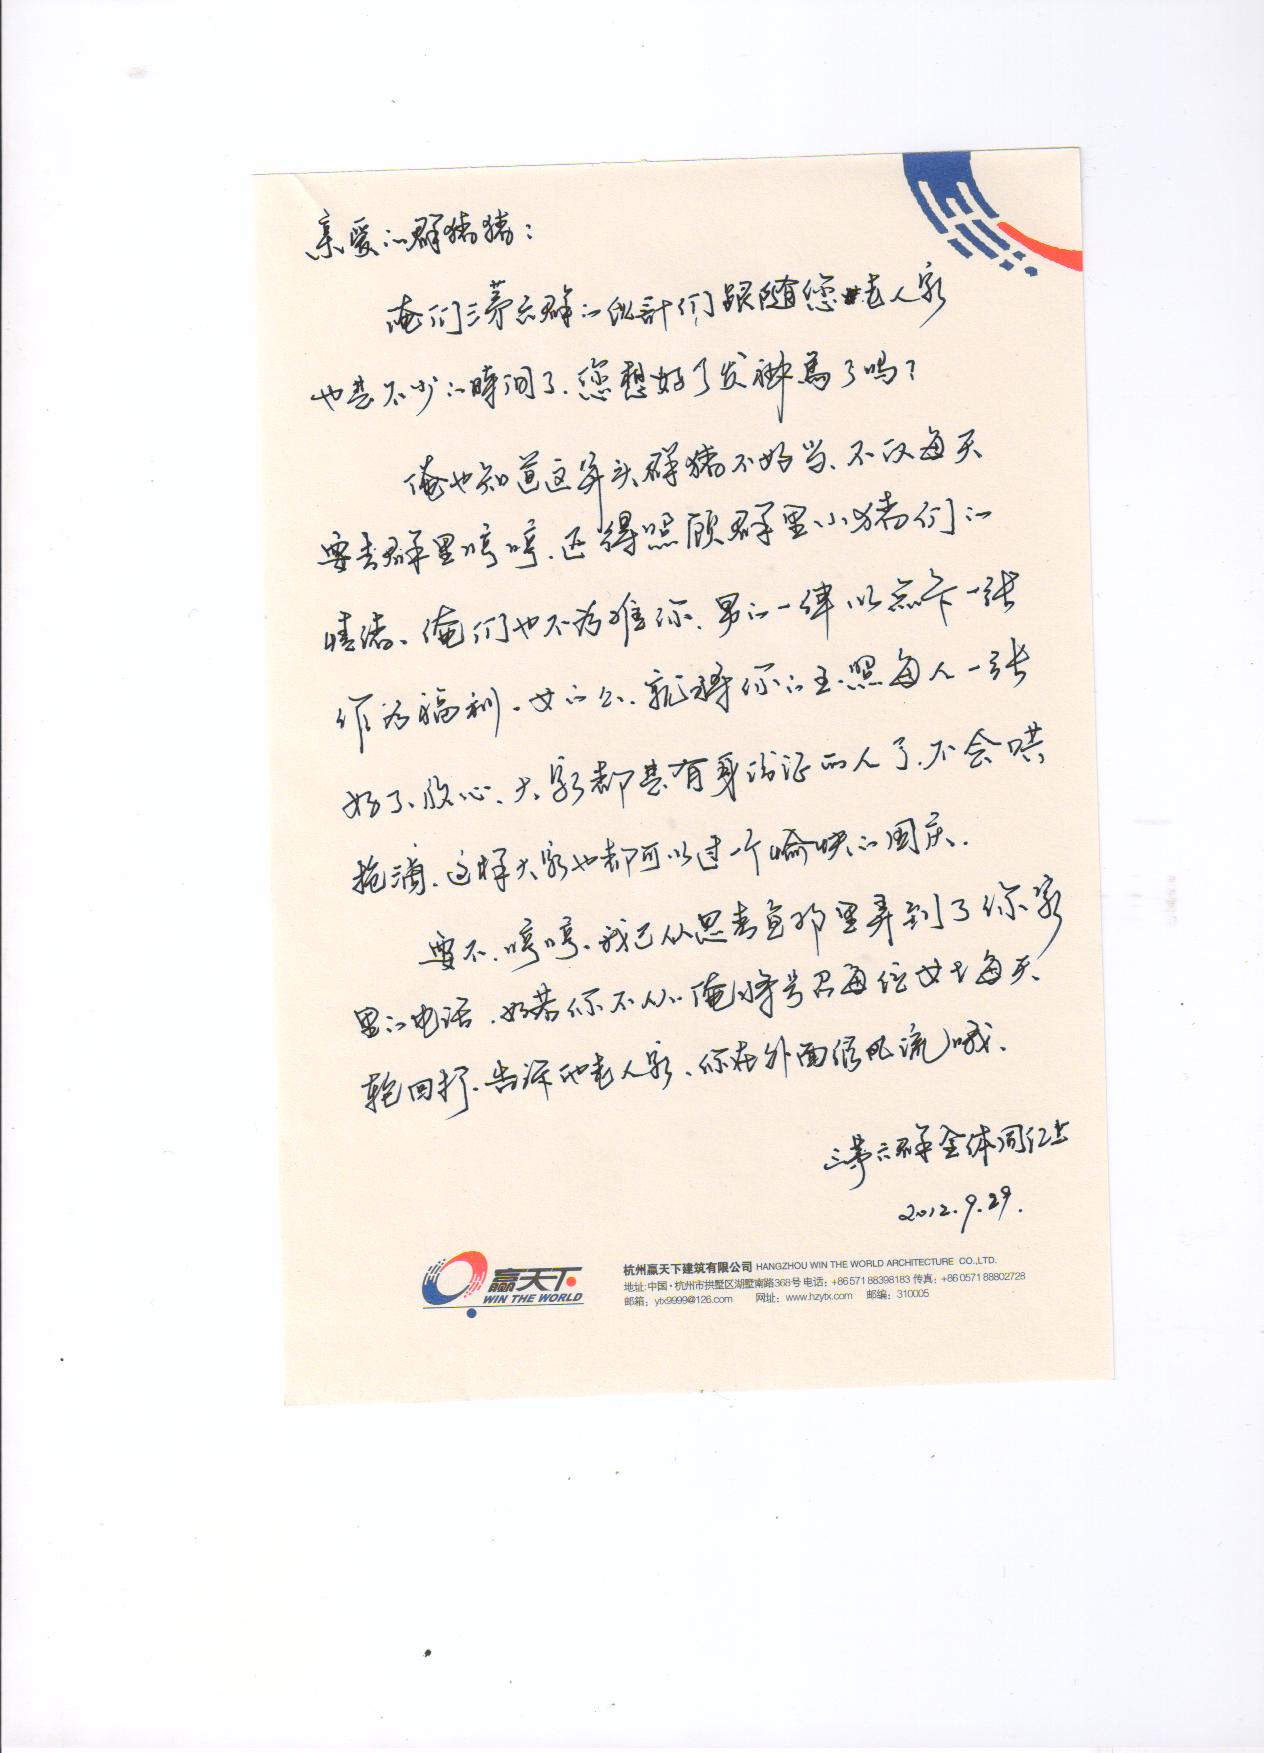 亲爱的群猪猪：
俺们三茅六群的伙计们跟随您老人家
也是不少的时间了.您想好了发神马了吗？
俺也知道这第头群猪不好当、不仅每天
要去群里哼哼.还得照顾群里小猪们的
情绪、俺们也不为难你、男的一律以点卡一张
作为福利.女的么.就将你的玉照每人一张
好了、放心、大家都是有身份证的人了.不会哄
抢滴.这样大家也都可以过一个愉快的国庆.
要不.哼哼、我已从思春鱼那里弄到了你家
里的电话.如若你不从.俺将号召每位女士每天
轮回打.告诉他老人家、你在外面很风流哦.
三茅六群全体同仁上
2012.9.29.
赢天下
WIN THE WORLD
杭州赢天下建筑有限公司 HANGZHOU WIN THE WORLD ARCHITECTURE CO.,LTD.
地址:中国·杭州市拱墅区湖墅南路368号 电话：+86 571 88398183 传真：+86 0571 88802728
邮箱：ytx9999@126.com 网址：www.hzytx.com 邮编：310005